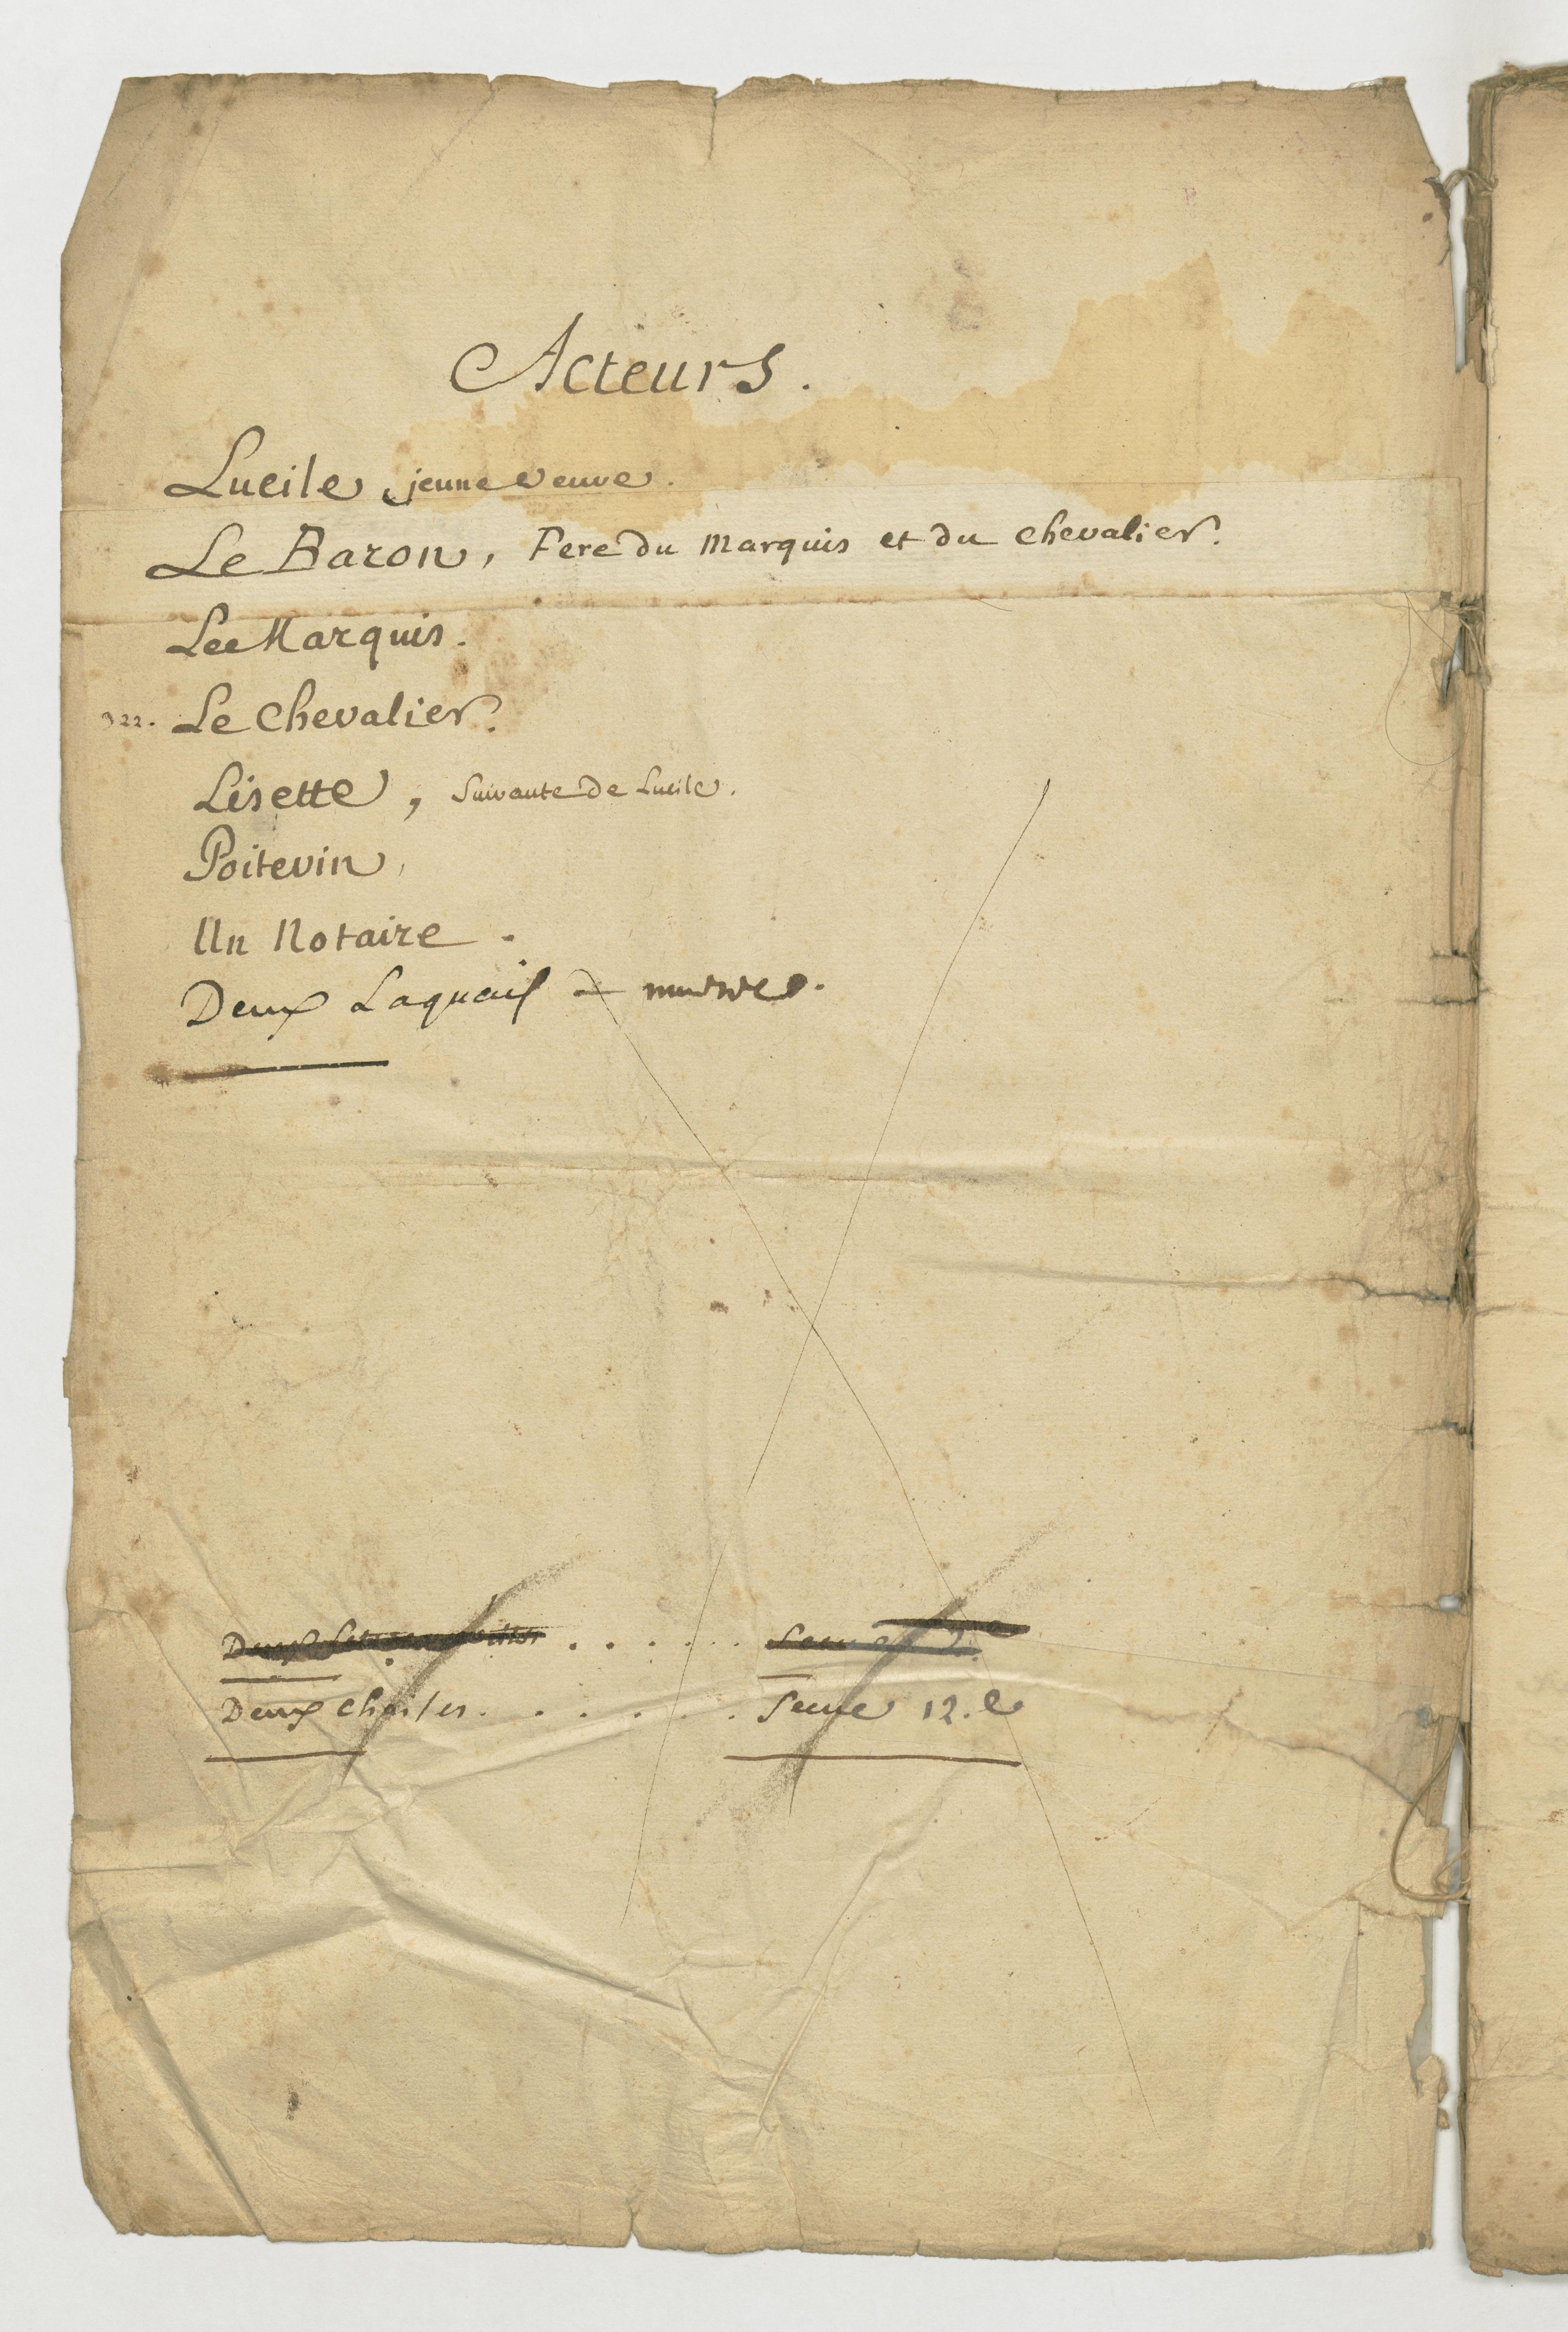 Acteurs.
Lucile, jeune veuve.
Le Baron, Pere du Marquis et du Chevalier.
Le Marquis.
322. Le Chevalier.
Lisette, Suivante de Lucile.
Poitevin,
Un Notaire.
Deux Laquais
Deux
Deux . . . . . . Scene 12.e